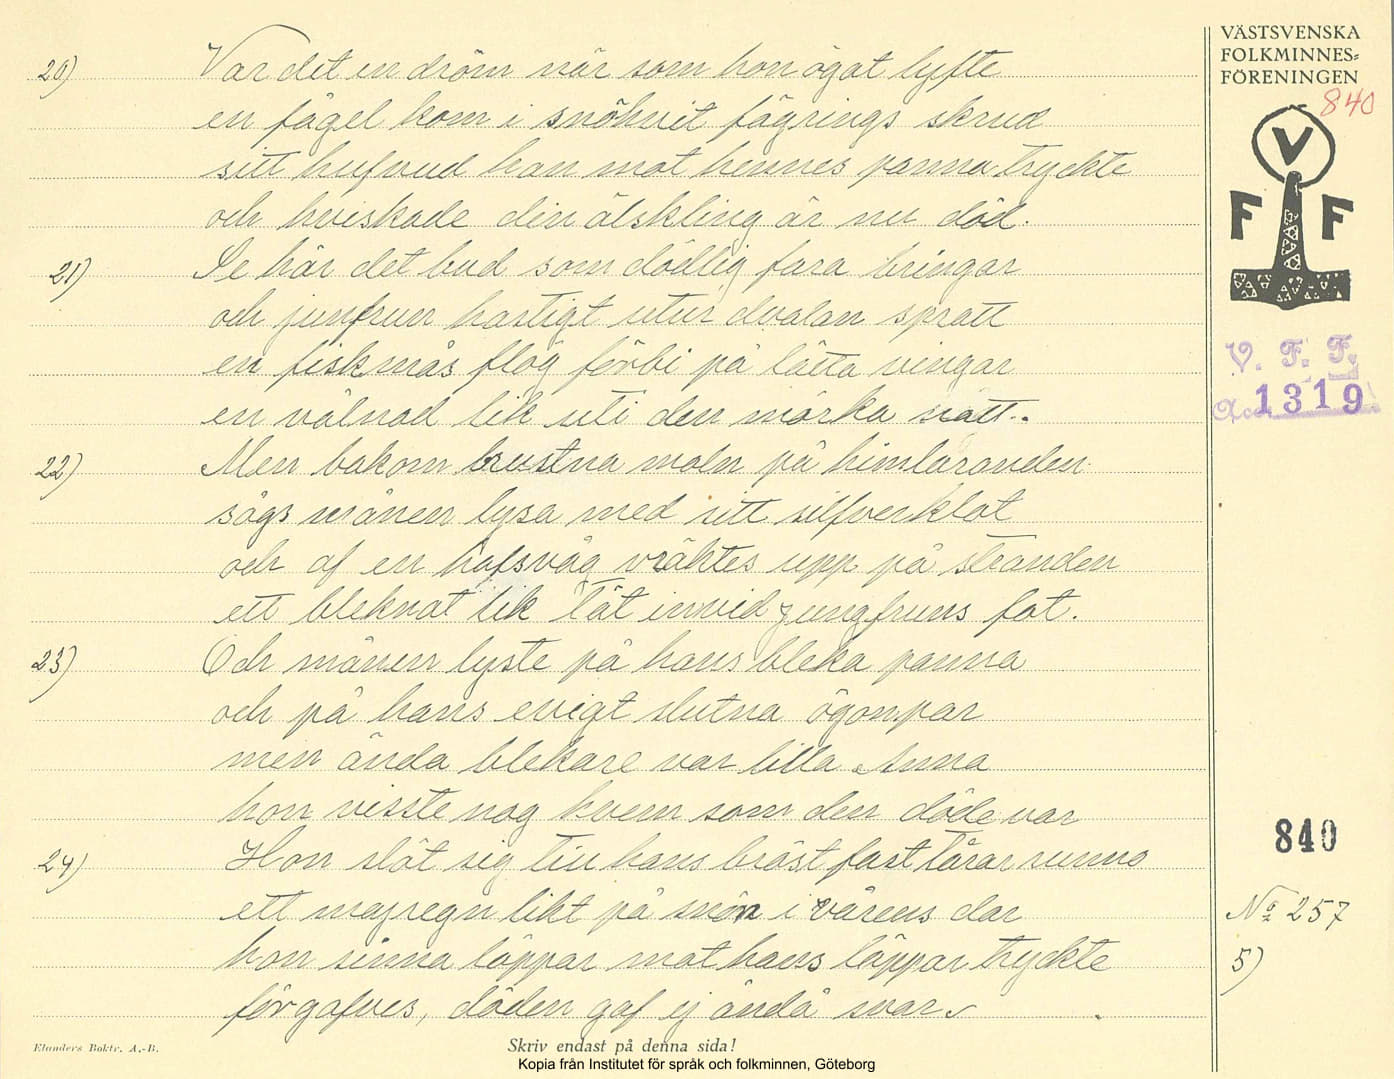 VÄSTSVENSKA
FOLKMINNES=
FÖRENINGEN
840
V
F F
V. F. F.
Acc. 1319
20) Var det en dröm när som hon ögat lyfte
en fågel kom i snöhvit fägrings skrud
sitt hufvud han mot hennes panna tryckte
och hviskade din älskling är nu död.
21) Se här det bud som dödlig fara bringar
och jungfrun hastigt utur dvalan spratt
en fiskmås flög förbi på lätta vingar
en vålnad lik uti den mörka natt.
22) Men bakom brustna moln på himlaranden
sågs månen lysa med sitt silfverklot
och af en hafsvåg vräktes upp på stranden
ett bleknat lik tät invid jungfruns fot.
23) Och månen lyste på hans bleka panna
och på hans evigt slutna ögonpar
men ända blekare var lilla Anna
hon visste nog hvem som den döde var
24) Hon slöt sig till hans bröst fast tårar runno
ett majregn likt på snön i vårens dar
hon sinna läppar mot hans läppar tryckte
förgäfves, döden gaf ej ändå svar
840
No 257
5)
Elanders Boktr. A.-B.
Skriv endast på denna sida!
Kopia från Institutet för språk och folkminnen, Göteborg